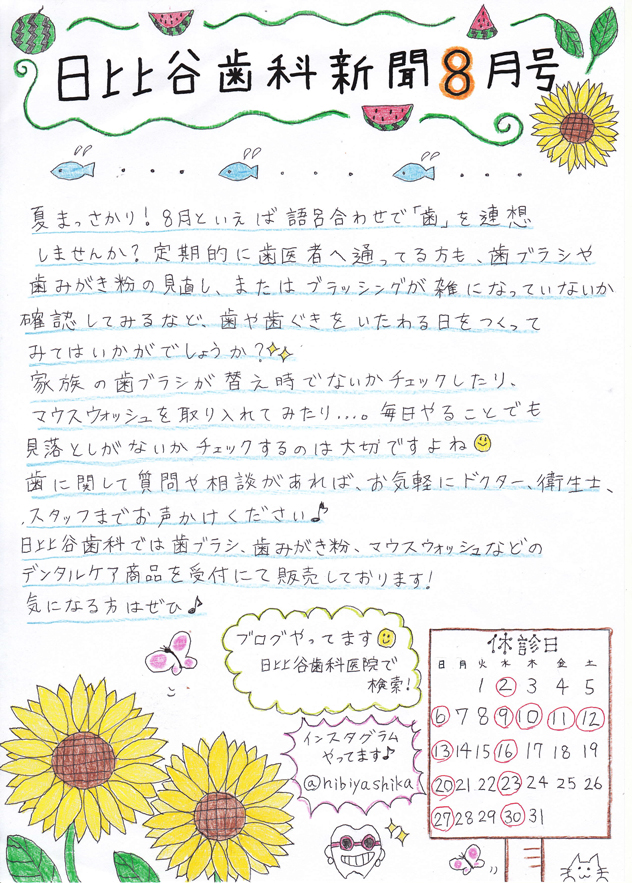 日比谷歯科新聞8月号
夏まっさかり！8月といえば語呂合わせで「歯」を連想
しませんか？定期的に歯医者へ通ってる方も、歯ブラシや
歯みがき粉の見直し、またはブラッシングが雑になっていないか
確認してみるなど、歯や歯ぐきをいたわる日をつくって
みてはいかがでしょうか？
家族の歯ブラシが替え時でないかチェックしたり、
マウスウォッシュを取り入れてみたり...。毎日やることでも
見落としがないかチェックするのは大切ですよね
歯に関して質問や相談があれば、お気軽にドクター、衛生士、
スタッフまでお声かけください♪
日比谷歯科では歯ブラシ、歯みがき粉、マウスウォッシュなどの
デンタルケア商品を受付にて販売しております！
気になる方はぜひ♪
ブログやってます
日比谷歯科医院で
検索！
インスタグラム
やってます♪
@hibiyashika
休診日
日 月 火 水 木 金 土
1 2 3 4 5
6 7 8 9 10 11 12
13 14 15 16 17 18 19
20 21 22 23 24 25 26
27 28 29 30 31